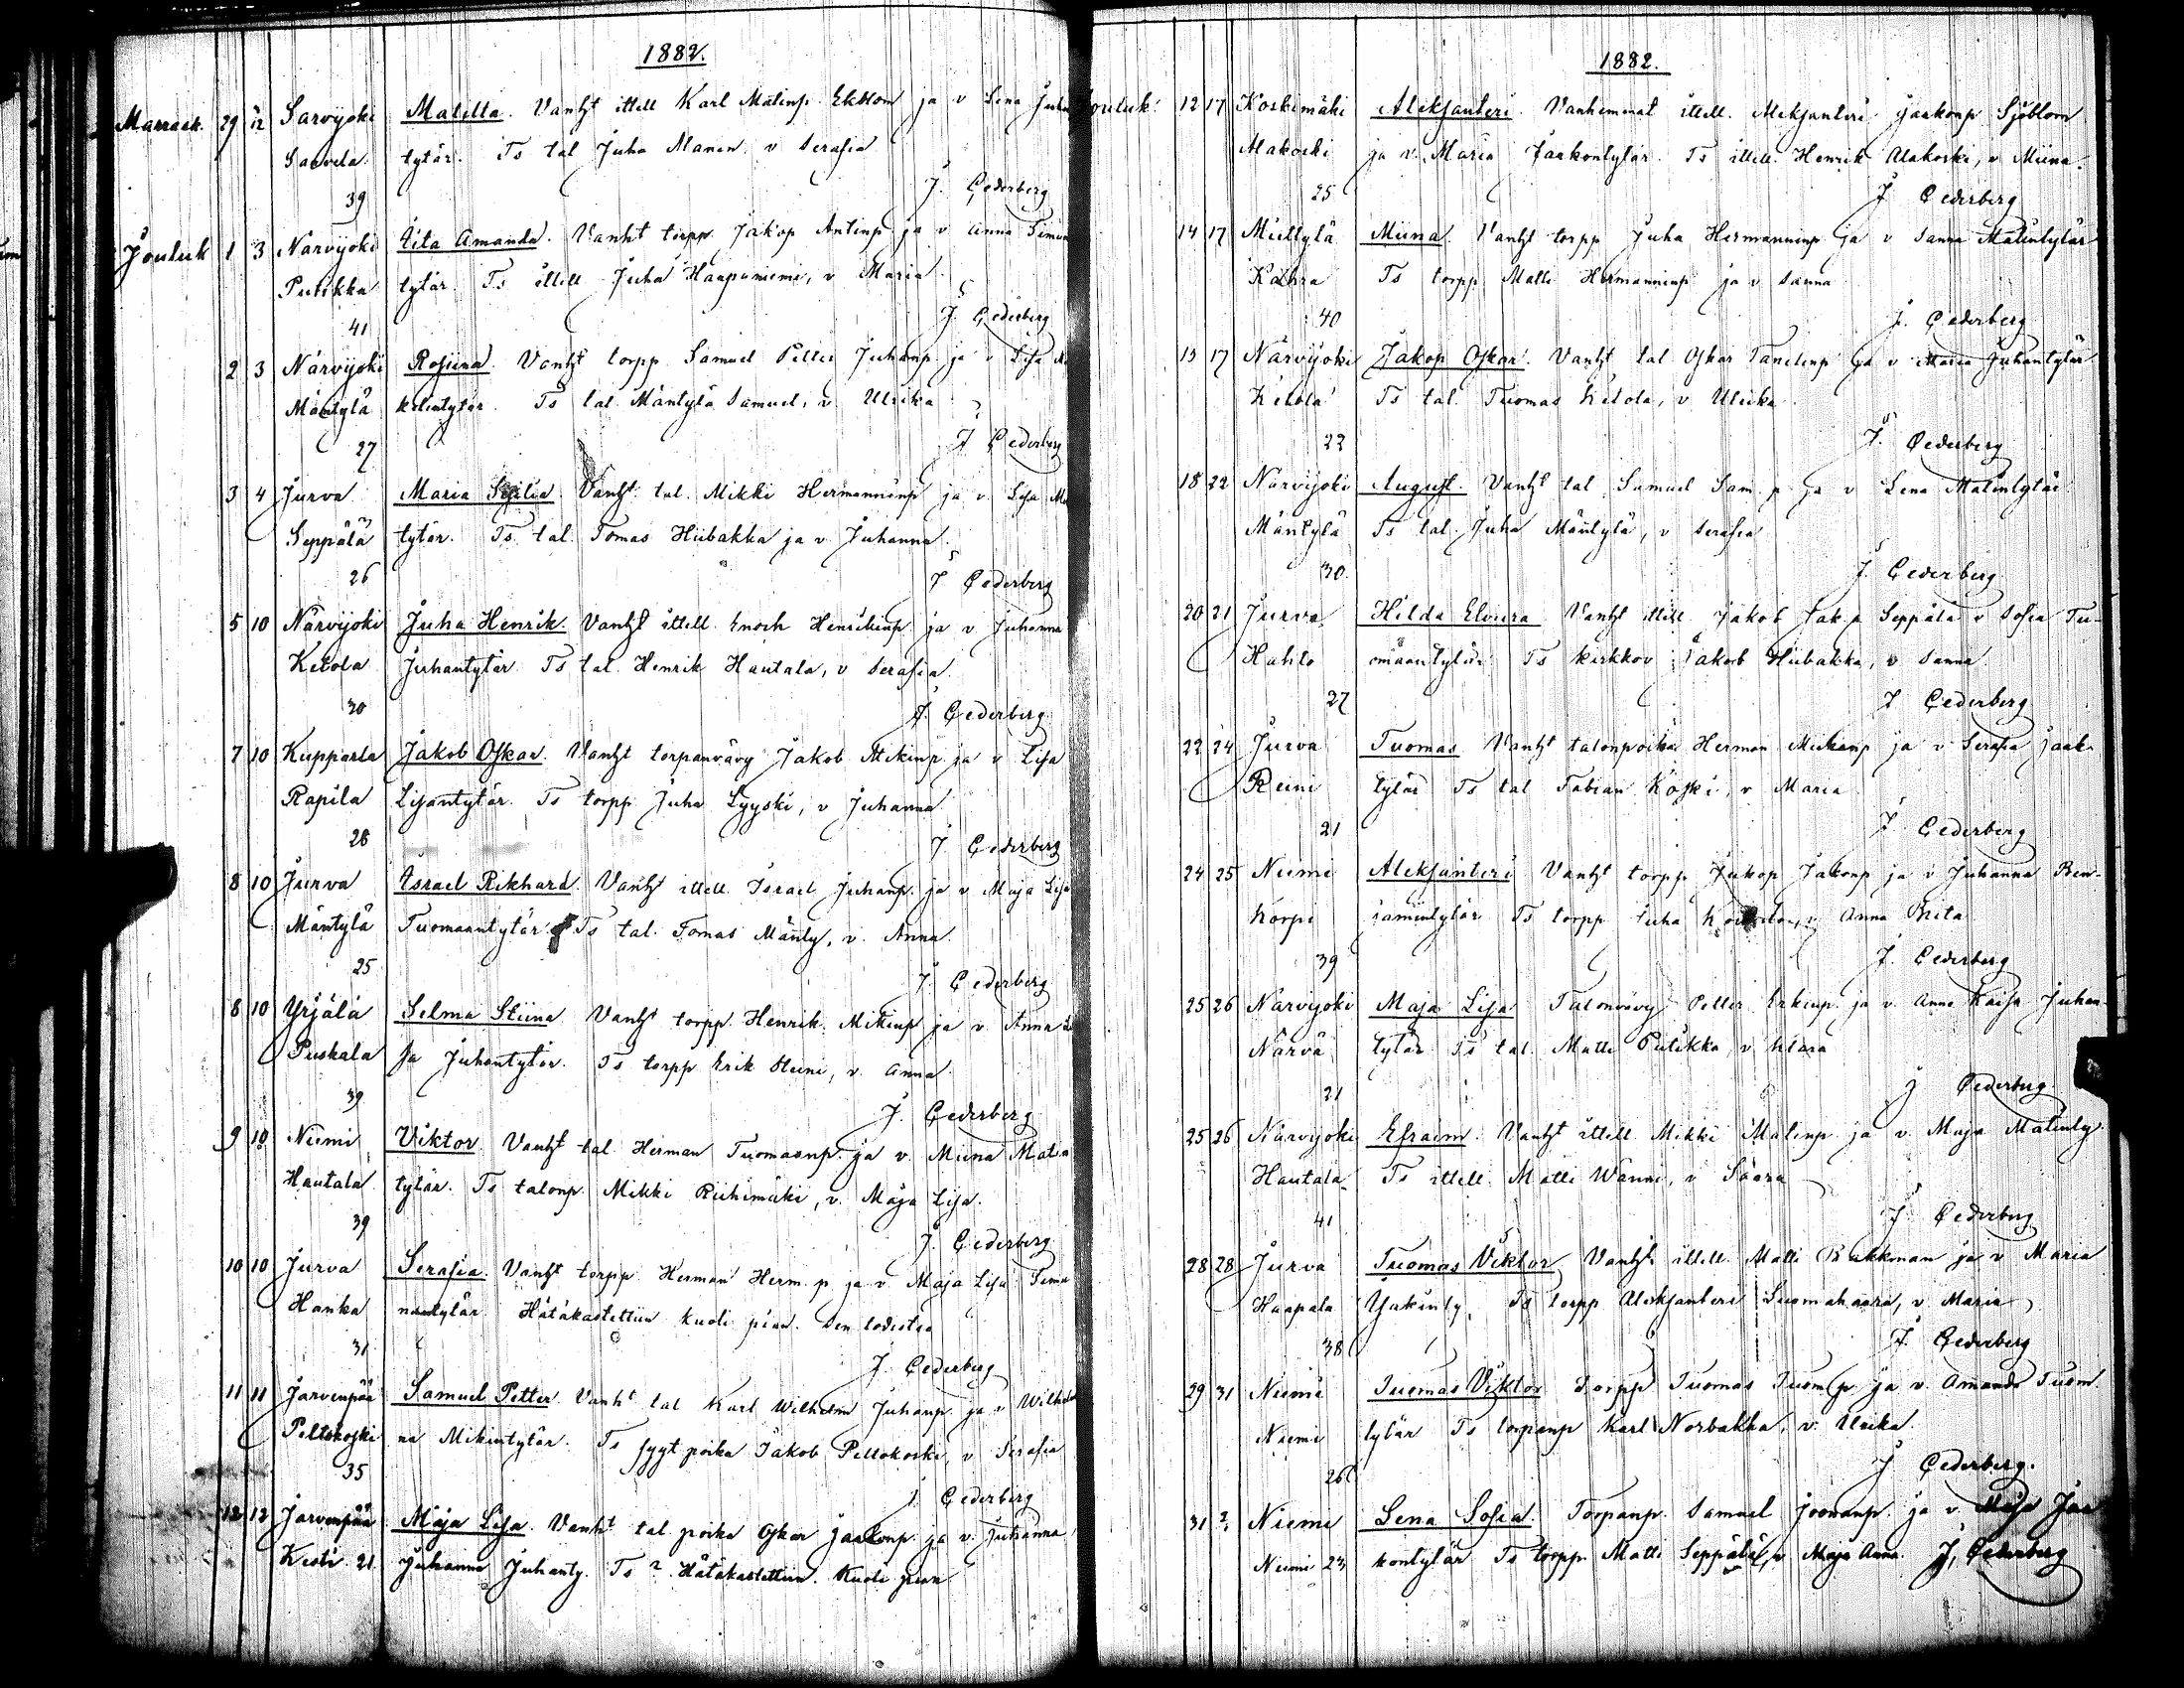 1882.
Marrask. 29 12 Sarvijoki Matilta. Vanht ittell Karl Matinp. Ekblom ja v Lena Juhan
Saarela tytär. Ts tal Juha Manen v Serafia
39 J. Cederberg
Jouluk 1 3 Närvijoki Tita Amanda. Vanht torpp. Jakop Antinp ja v Anna Simon
Pulikka tytär. Ts ittell Juha Haapaniemi, v Maria
41 J. Cederberg
2 3 Närvijoki Rosiina. Vanht torpp Samuel Petter Juhanp ja v Lisa
Mäntylä tytär. Ts tal. Mäntylä Samuel, v. Ulrika
27 J Cederberg
3 4 Jurva Maria Sesilia. Vanht. tal. Mikki Hermanninp ja v. Lisa
Seppälä tytär. Ts. tal. Tomas Hiibakka ja v Juhanna.
26 J Cederberg
5 10 Närvijoki Juha Henrik. Vanht ittell. Enoch Henrikinp ja v Juhanna
Ketola Juhantytär. Ts tal. Henrik Hautala, v Serafia.
30 J. Cederberg
7 10 Kupparla Jakob Oskar. Vanht torpanvävy Jakob Mikinp. ja v Lisa
Rapila Lisantytär. Ts torpp Juha Lyyski, v Juhanna
28 J Cederberg
8 10 Jurva Israel Rikhard. Vanht ittell. Israel Juhanp. ja v Maja Lisa
Mäntylä Tuomaantytär. Ts tal. Tomas Mänty, v. Anna.
25 J. Cederberg
8 10 Yrjälä Selma Stiina Vanht torpp. Henrik. Mikinp ja v Anna Li
Puskala sa Juhantytär. Ts torpp Erik Heini, v. Anna
39 J. Cederberg
9 10 Niemi Viktor. Vanht tal. Herman Tuomaanp. ja v. Miina Matin
Hautala tytär. Ts talonp. Mikki Riihimäki, v. Maja Lisa.
39 J. Cederberg
10 10 Jurva Serafia. Vanht torpp. Herman Herm. p ja v. Maja Lisa
Hanka tytär. Hätäkastettiin kuoli pian. Sen todistaa
31 J. Cederberg
11 11 Järvenpää Samuel Petter Vanht tal Karl Wilhelm Juhanp. ja v Wilhelmi
Peltokoski na Mikintytär. Ts syyt. poika Jakob Peltokoski, v Serafia
35 J. Cederberg
12 12 Järvenpää Maja Lisa. Vanht tal. poika Oskar Jaakonp. ja v. Juhanna
Kesti 21 Juhanna Juhanty. Ts ? Hätäkastettiin. Kuoli pian
1882.
Jouluk 12 17 Koskimäki Aleksanteri. Vanhemmat ittell. Aleksanteri Jaakonp Sjöblom
Alakoski ja v. Maria Jaakontytär. Ts ittell. Henrik Alakoski, v. Miina.
25 J Cederberg
14 17 Miettylä Miina. Vanht torpp Juha Hermanninp ja v Sanna Matintytär
Kahra Ts torpp Matti Hermanninp ja v Sanna
40 J. Cederberg
15 17 Närvijoki Jakop Oskar. Vanht tal Oskar Tanelinp ja v Maria Juhantytär
Ketola Ts tal. Tuomas Ketola, v Ulrika
22 J. Cederberg
18 22 Närvijoki August. Vanht tal Samuel Sam. p ja v Lena Matintytär
Mäntylä Ts tal. Juha Mäntylä, v Serafia
30. J. Cederberg
20 21 Jurva Hilda Elviira Vanht ittell Jakob Jak. p Seppälä v Sofia Tu-
Hahto omaantytär Ts kirkkov. Jakob Hiibakka, v Sanna
27 J Cederberg
22 24 Jurva Tuomas Vanht talonpoika Herman Mikanp ja v Serafia Jaak.
Reini tytär Ts tal Fabian Koski, v Maria
21 J. Cederberg
24 25 Niemi Aleksanteri Vanht torpp Jakop Jakonp ja v Juhanna Ben-
Korpi jamintytär Ts torpp Juha v Anna Brita
39 J. Cederberg
25 26 Närvijoki Maja Lisa Talonvävy Petter Erkinp ja v Anna Kaisa Juhan-
Närvä tytär Ts tal. Matti Pulikka, v. Klara
21 J Cederberg
25 26 Närvijoki Efraim. Vanht ittell Mikki Matinp ja v. Maja Matinty.
Hautala Ts ittell. Matti Wänni, v Saara
41 J Cederberg
28 28 Jurva Tuomas Viktor Vanht ittell. Matti Bäkkman ja v Maria
Haapala Ts torpp Aleksanteri Luomahaara, v. Maria
38 J. Cederberg
29 31 Niemi Tuomas Viktor Torpp Tuomas Tuom p ja v. Amanda Tuom.
Niemi tytär Ts torpanp Karl Norbakka, v. Ulrika.
26 J Cederberg.
31 ? Niemi Lena Sofia. Torpanp. Samuel Joonanp. ja v. Maja Jaa
Niemi 23 kontytär Ts torpp Matti Seppälä, v Maja Anna. J, Cederberg